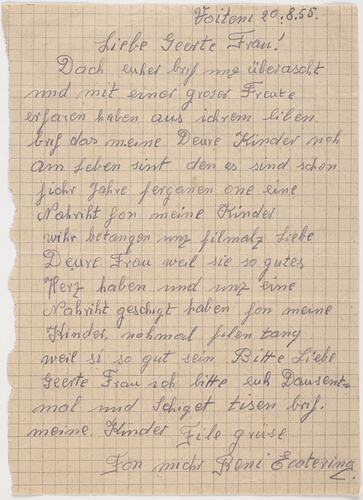 Voiteni 20.8.55.
Liebe Geerte Frau!
Dach euher brif unz überascht
und mit einer groser Freute
erfaren haben aus ihrem liben
brif das meine Deure Kinder noh
am Leben sint den es sind schon
fiehr Jahre ferganen one eine
Nahriht fon meine Kinder
wihr betangen unz filmalz Liebe
Deure Frau weil sie so gutes
Herz haben und unz eine
Nahriht geschigt haben fon meine
Kinder, nohmal filen tang
weil si so gut sein Bitte Liebe
Geerte Frau ich bitte euh Dausent-
mal und Schiget tisen brif.
meine Kinder File grüse
Fon mihr Reni Ecaterina